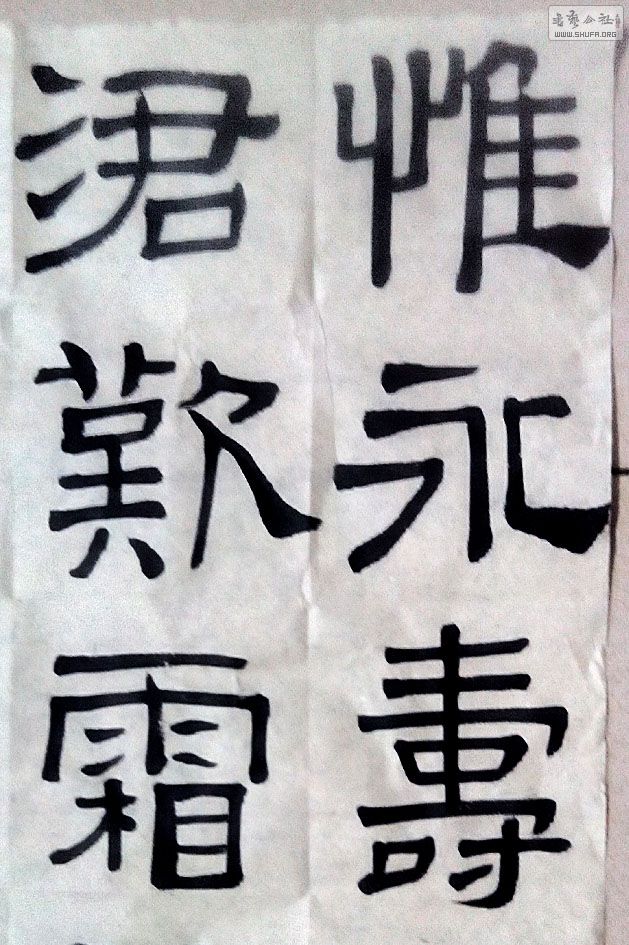 惟永壽
涒歎霜
書藝公社
WWW.SHUFA.ORG